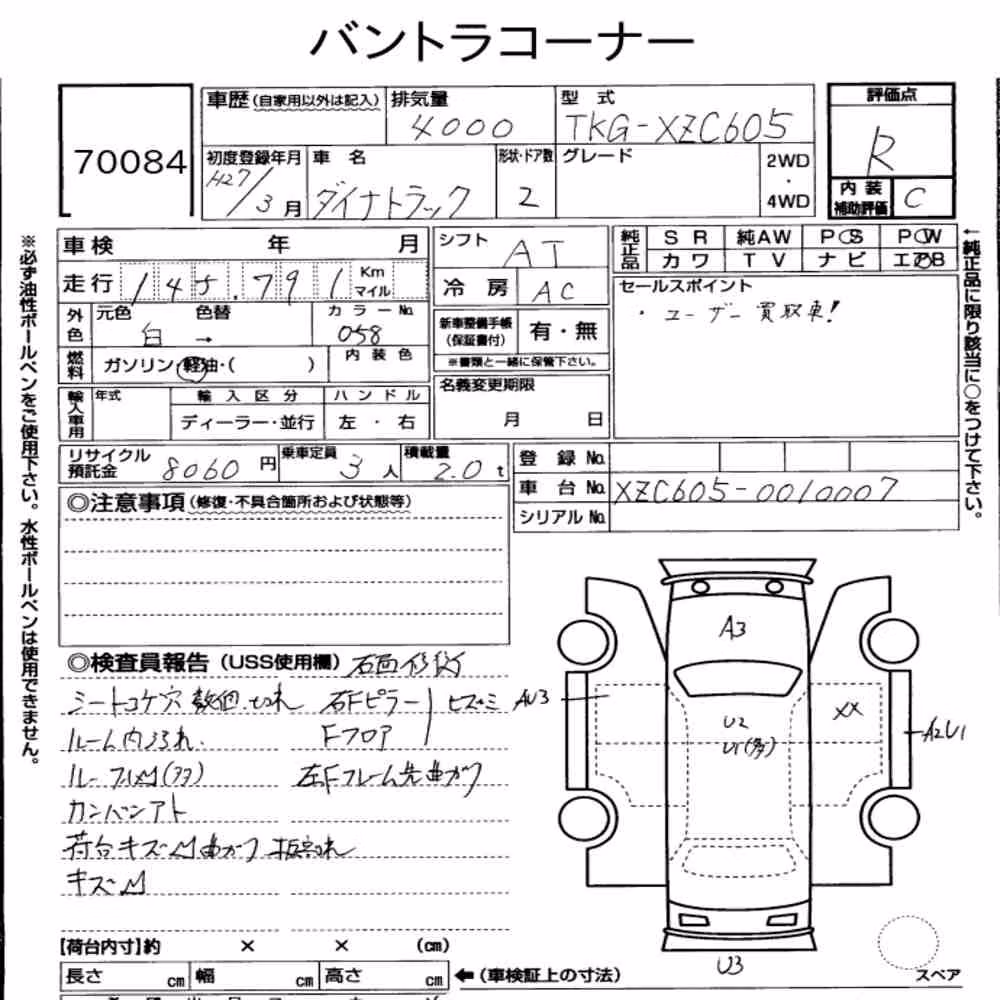 バントラコーナー
70084
車歴(自家用以外は記入) 排気量 型式 評価点
4000 TKG-XZC605 R
初度登録年月 車名 形状・ドア数 グレード 2WD・4WD
H27/3月 ダイナトラック 2
内装補助評価 C
車検 年 月 シフト AT
純正品 SR 純AW PS PW
カワ TV ナビ エアB
走行 145,791 Km マイル
冷房 AC
セールスポイント
・ユーザー買取車!
外色 元色 色替 カラーNo.
白 → 058
新車整備手帳(保証書付) 有・無
※書類と一緒に保管下さい。
燃料 ガソリン・軽油・( ) 内装色
名義変更期限
月 日
輸入車用 年式 輸入区分 ハンドル
ディーラー・並行 左・右
リサイクル預託金 8060円 乗車定員 3人 積載量 2.0t
登録No.
車台No. XZC605-0010007
シリアルNo.
◎注意事項(修復・不具合箇所および状態等)
◎検査員報告(USS使用欄)
シートコゲ穴数個.切れ 右Fピラー ヒズミ
ルーム内汚れ. Fフロア
左Fフレーム先曲がり
カンバンアト
荷台キズ凹曲がり
キズ凹
A3
AU3
U2
U1(多)
XX
A2U1
U3
スペア
【荷台内寸】約 × × (cm)
長さ cm 幅 cm 高さ cm ←(車検証上の寸法)
※必ず油性ボールペンをご使用下さい。水性ボールペンは使用できません。
←純正品に限り該当に○をつけて下さい。